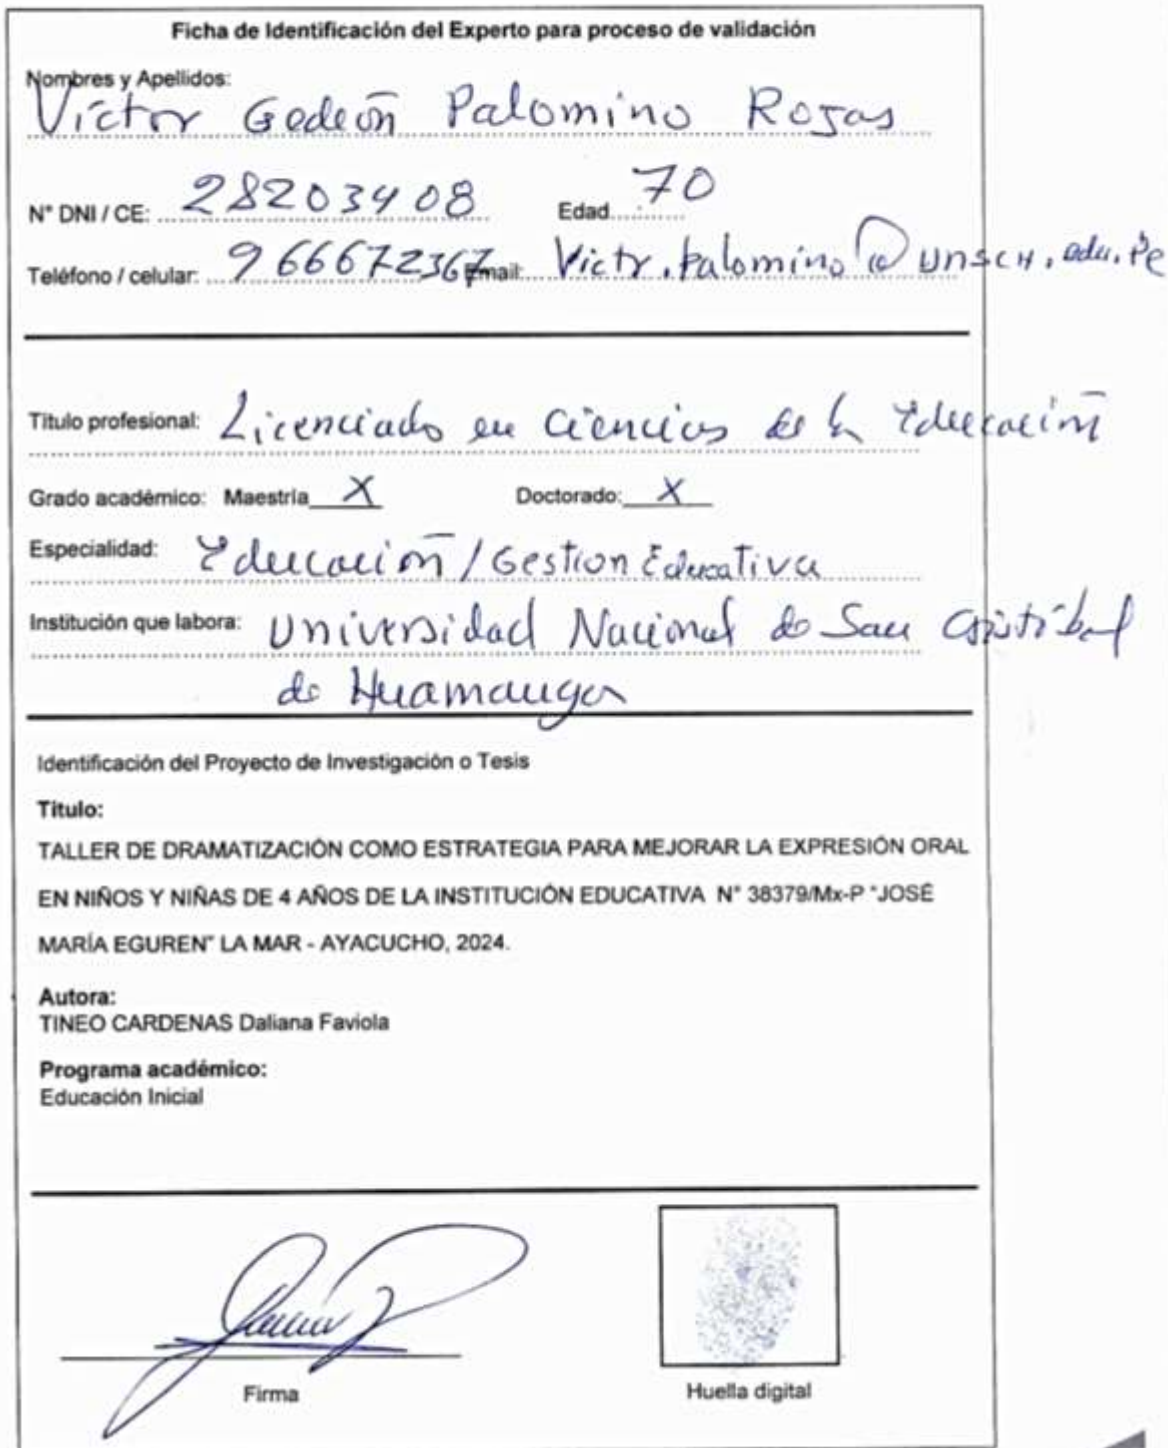 Ficha de Identificación del Experto para proceso de validación
Nombres y Apellidos:
Víctor Gedeón Palomino Rojas
N° DNI / CE: 28203408 Edad 70
Teléfono / celular: 966672367 Email: Victr.palomino@unsch.edu.pe
Titulo profesional: Licenciado en Ciencias de la Educación
Grado académico: Maestria X Doctorado: X
Especialidad: Educación / Gestion Educativa
Institución que labora: Universidad Nacional de San Cristóbal
de Huamanga
Identificación del Proyecto de Investigación o Tesis
Titulo:
TALLER DE DRAMATIZACIÓN COMO ESTRATEGIA PARA MEJORAR LA EXPRESIÓN ORAL
EN NIÑOS Y NIÑAS DE 4 AÑOS DE LA INSTITUCIÓN EDUCATIVA N° 38379/Mx-P "JOSÉ
MARÍA EGUREN" LA MAR - AYACUCHO, 2024.
Autora:
TINEO CARDENAS Daliana Faviola
Programa académico:
Educación Inicial
Firma
Huella digital